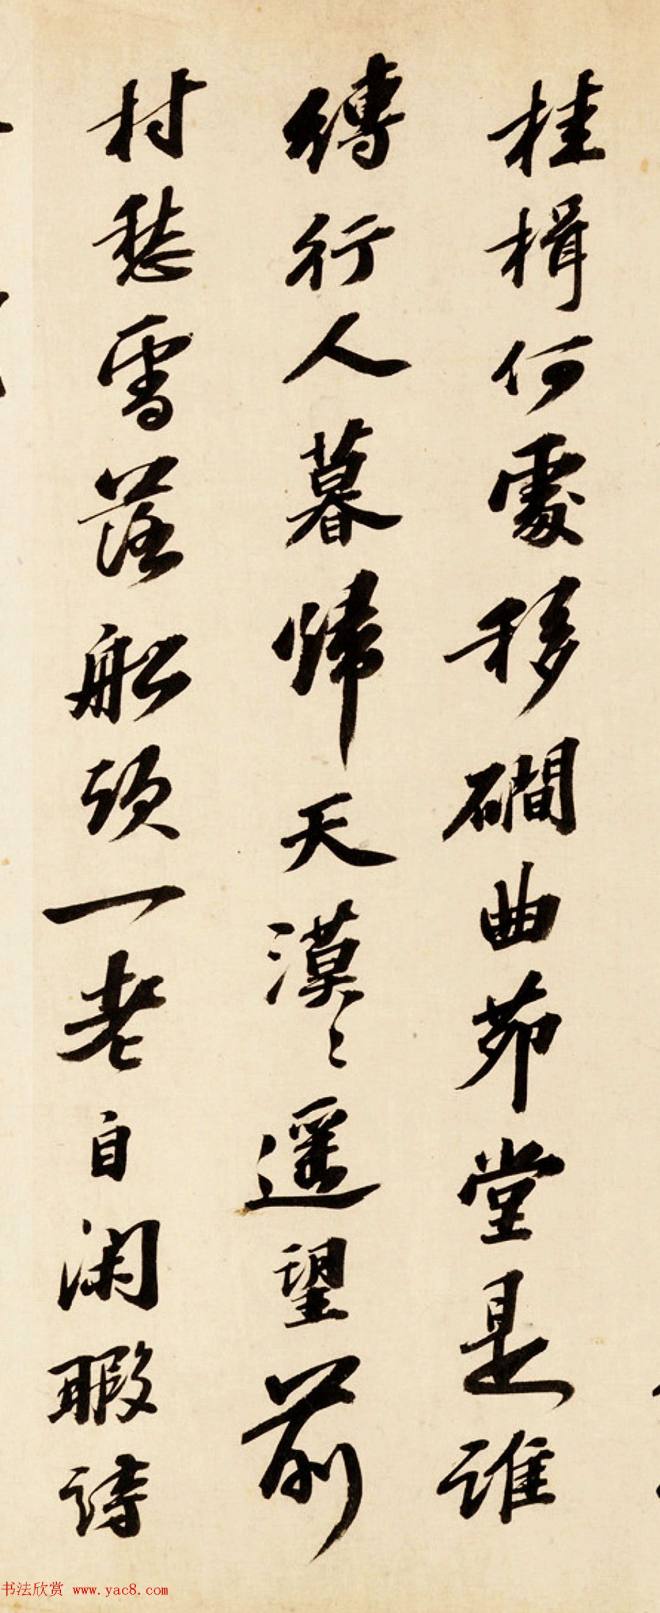 桂楫何處移磵曲茆堂是誰
縛行人暮歸天漠〻遥望前
村愁雪落船頭一老自闲暇詩
书法欣赏 www.yac8.com